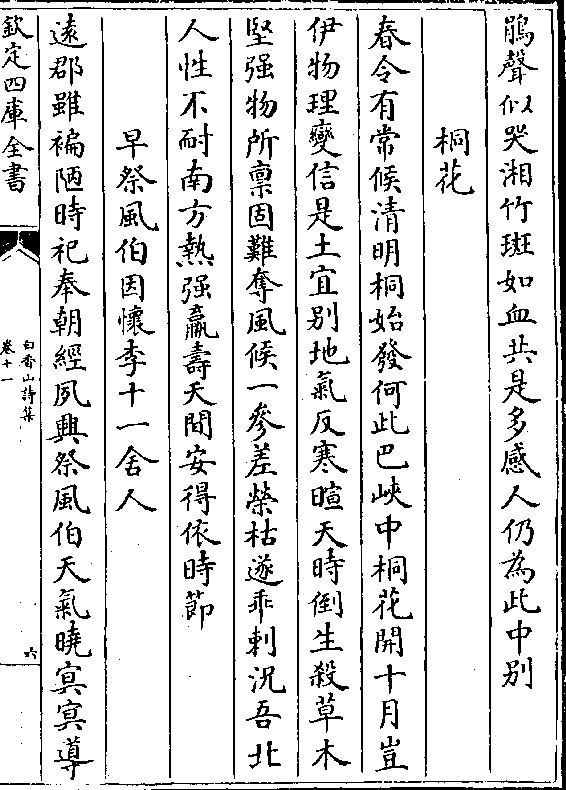 鵑聲似哭湘竹斑如血共是多感人仍為此中別
桐花
春令有常候清明桐始發何此巴峽中桐花開十月豈
伊物理變信是土宜別地氣反寒暄天時倒生殺草木
堅强物所稟固難奪風候一參差榮枯遂乖剌況吾北
人性不耐南方熱强羸壽夭間安得依時節
早祭風伯因懷李十一舍人
遠郡雖褊陋時祀奉朝經夙興祭風伯天氣曉冥冥導
欽定四庫全書
白香山詩集
卷十一
六